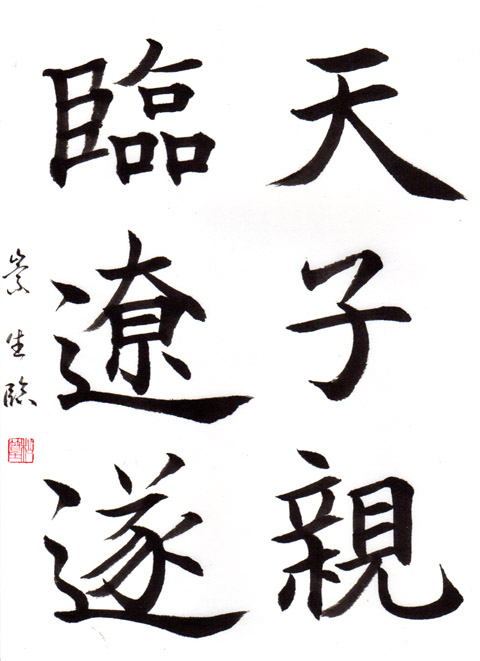 天子親
臨遼遂
崇生臨